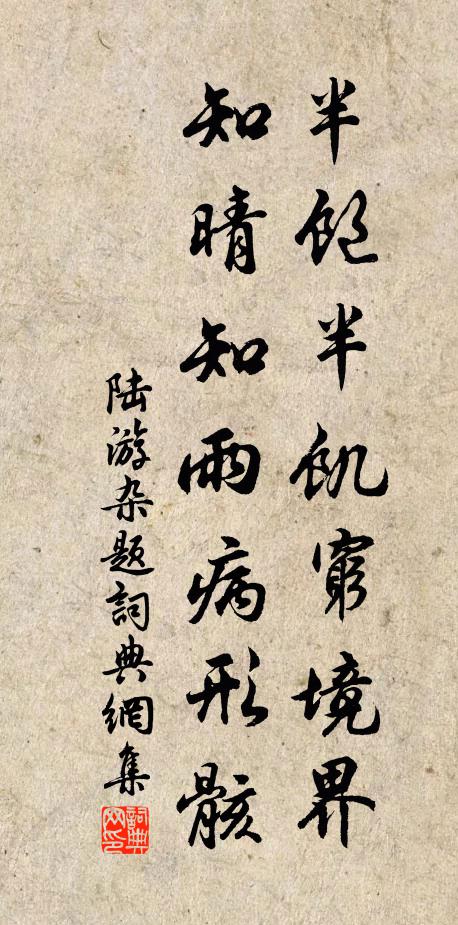 半飽半飢窮境界
知晴知雨病形骸
陆游杂题詞典網集
詞典网印